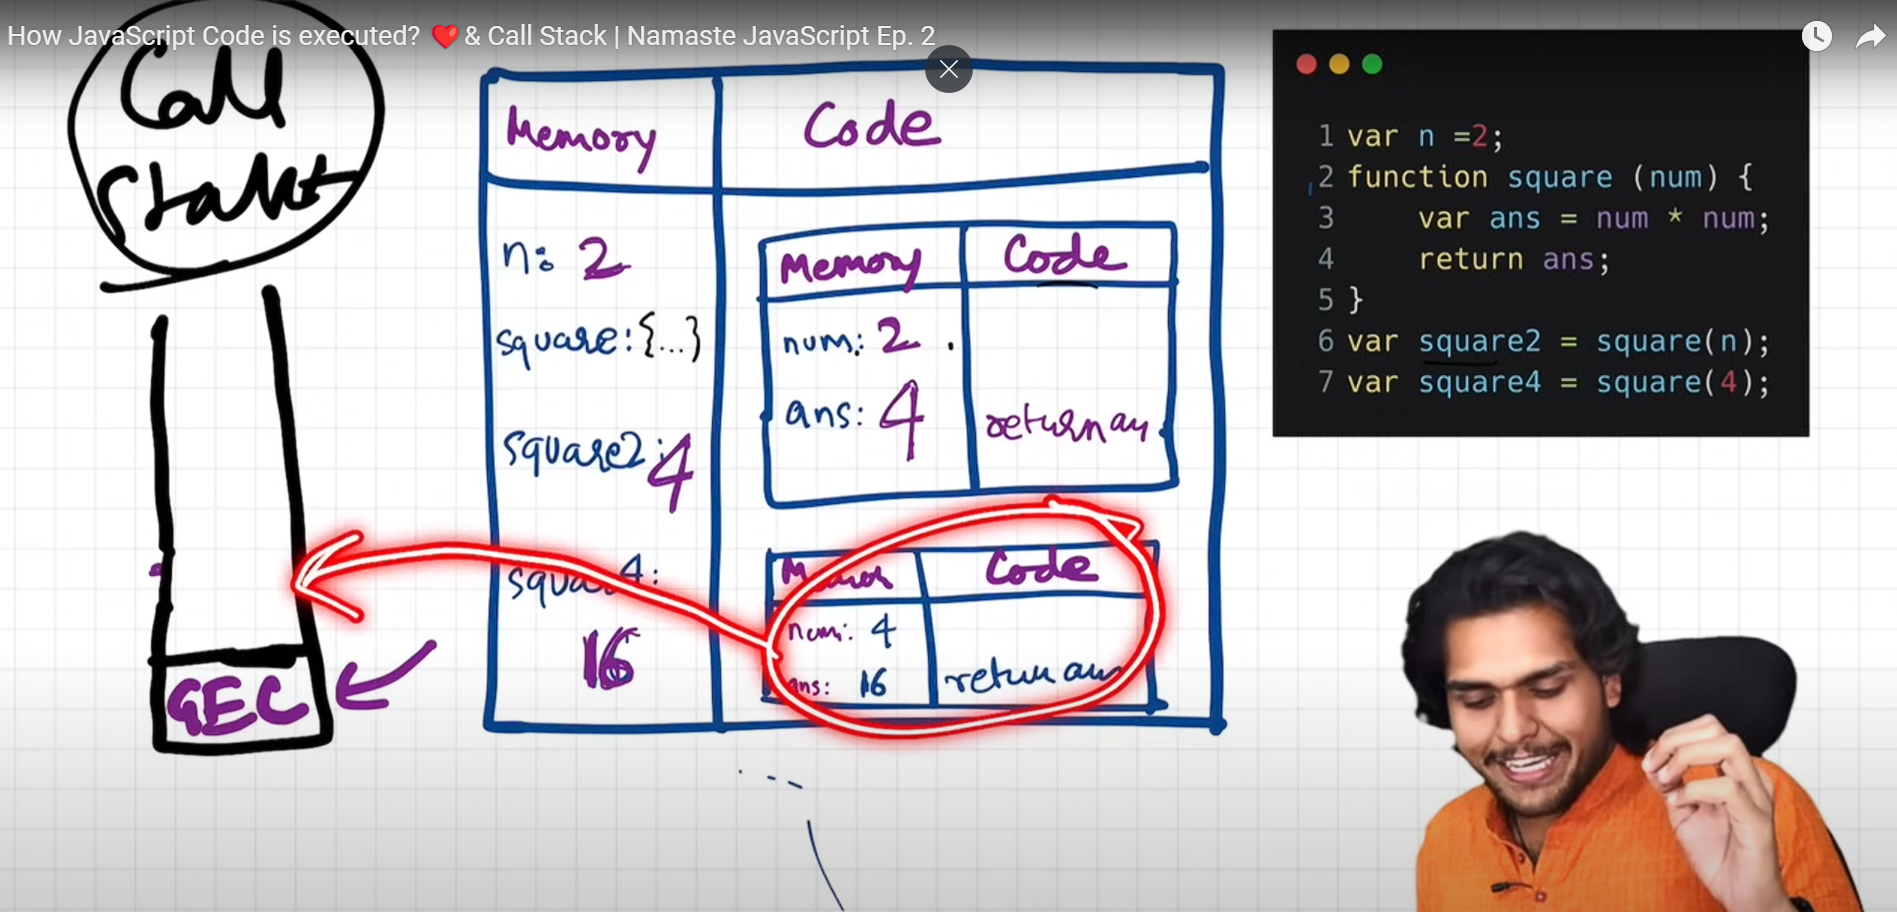 How JavaScript Code is executed? ❤️& Call Stack | Namaste JavaScript Ep. 2
Call
Stack
GEC
Memory
Code
n: 2
square: {...}
square2: 4
square4:
16
Memory
Code
num: 2
ans: 4
return an
Code
num: 4
ans: 16
return ans
1 var n =2;
2 function square (num) {
3 var ans = num * num;
4 return ans;
5 }
6 var square2 = square(n);
7 var square4 = square(4);